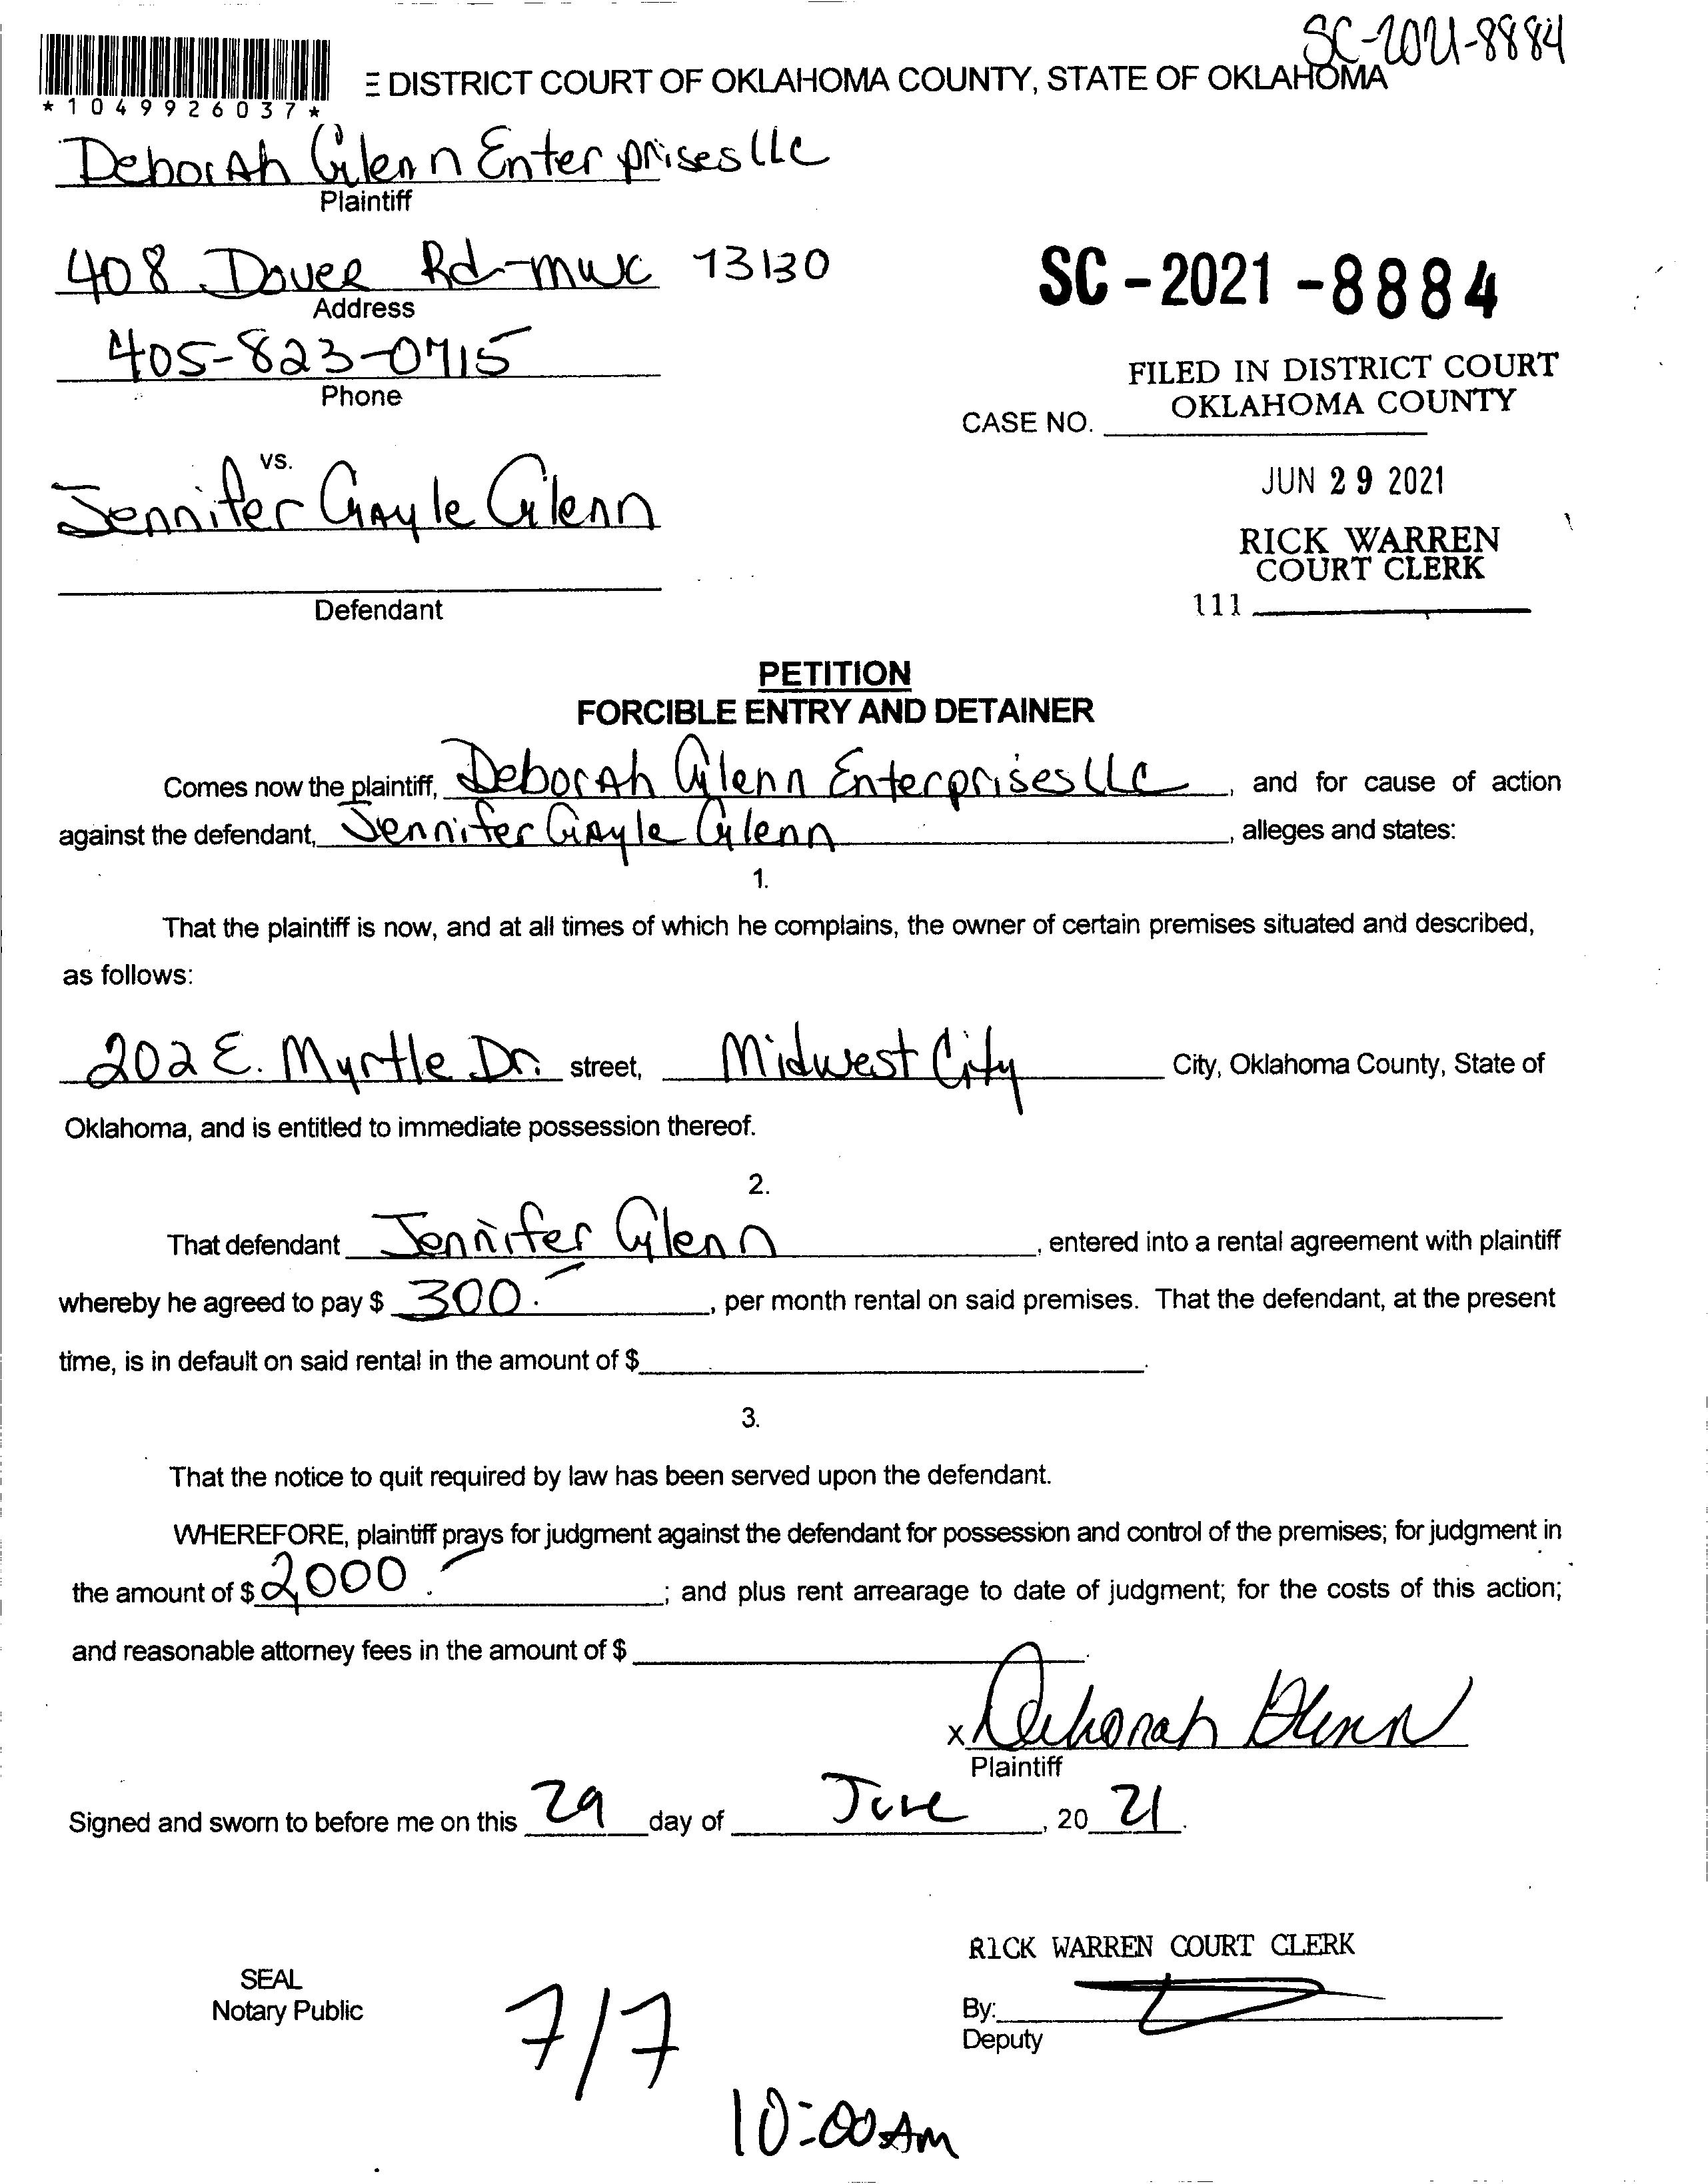 SC-2021-8884
*1049926037*
E DISTRICT COURT OF OKLAHOMA COUNTY, STATE OF OKLAHOMA
Deborah Glenn Enterprises LLC
Plaintiff
408 Dover Rd-mwc 73130
Address
SC-2021-8884
405-823-0715
Phone
FILED IN DISTRICT COURT
OKLAHOMA COUNTY
CASE NO.
vs.
JUN 29 2021
Jennifer Gayle Glenn
RICK WARREN
COURT CLERK
Defendant
111
PETITION
FORCIBLE ENTRY AND DETAINER
Comes now the plaintiff, Deborah Glenn Enterprises LLC, and for cause of action
against the defendant, Jennifer Gayle Glenn, alleges and states:
1.
That the plaintiff is now, and at all times of which he complains, the owner of certain premises situated and described,
as follows:
202 E. Myrtle Dr. street, Midwest City City, Oklahoma County, State of
Oklahoma, and is entitled to immediate possession thereof.
2.
That defendant Jennifer Glenn, entered into a rental agreement with plaintiff
whereby he agreed to pay $ 300.-, per month rental on said premises. That the defendant, at the present
time, is in default on said rental in the amount of $.
3.
That the notice to quit required by law has been served upon the defendant.
WHEREFORE, plaintiff prays for judgment against the defendant for possession and control of the premises; for judgment in
the amount of $ 2000.-; and plus rent arrearage to date of judgment; for the costs of this action;
and reasonable attorney fees in the amount of $.
x Deborah Glenn
Plaintiff
Signed and sworn to before me on this 29 day of June, 20 21.
RICK WARREN COURT CLERK
SEAL
Notary Public
By:
Deputy
7/7
10:00 AM